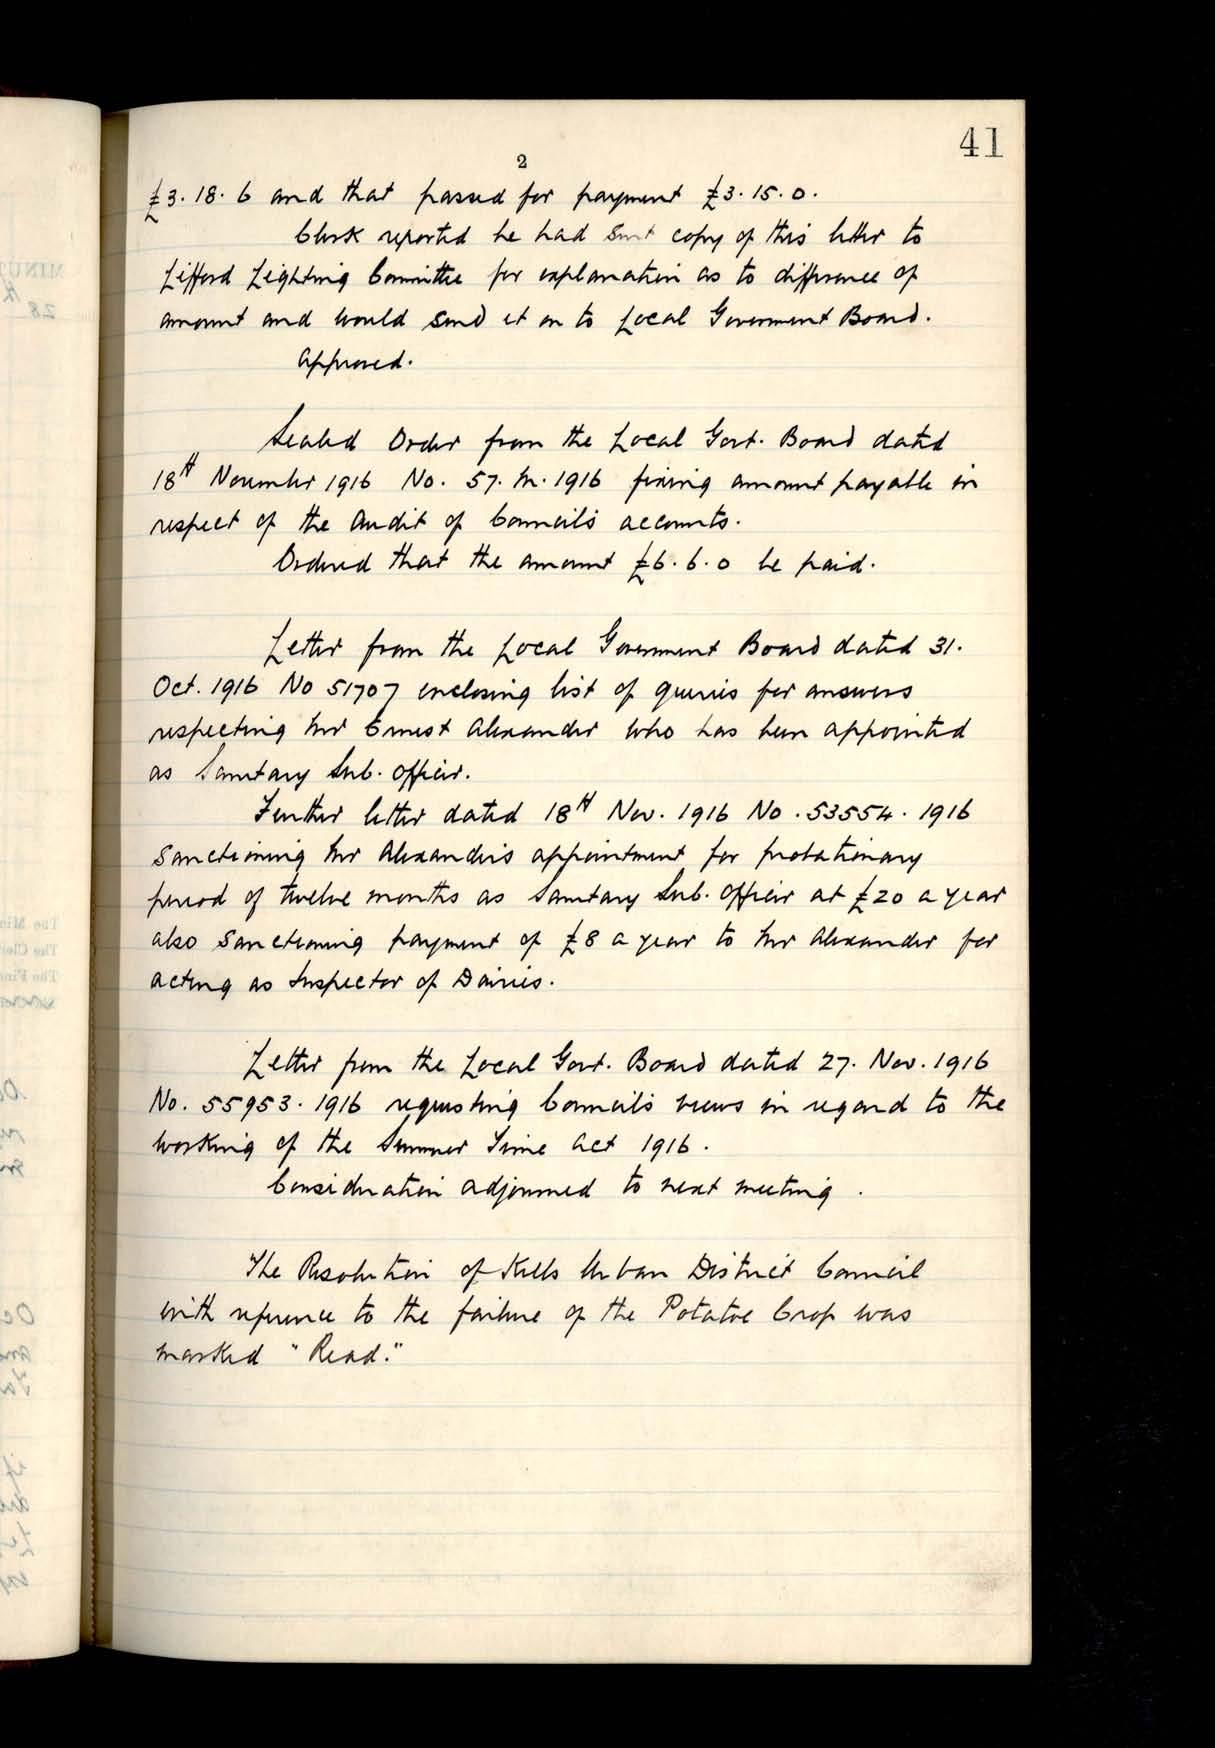 41
2
£3. 18. 6 and that passed for payment £3. 15. 0.
Clerk reported he had sent copy of this letter to
Lifford Lighting Committee for explanation as to difference of
amount and would send it on to Local Government Board.
Approved.
Sealed Order from the Local Govt. Board dated
18th November 1916 No. 57. M. 1916 fixing amount payable in
respect of the Audit of Council's accounts.
Ordered that the amount £6. 6. 0 be paid.
Letter from the Local Government Board dated 31.
Oct. 1916 No 51707 enclosing list of queries for answers
respecting Mr Ernest Alexander who has been appointed
as Sanitary Sub. Officer.
Further letter dated 18th Nov. 1916 No. 53554. 1916
sanctioning Mr Alexander's appointment for probationary
period of twelve months as Sanitary Sub. Officer at £20 a year
also sanctioning payment of £8 a year to Mr Alexander for
acting as Inspector of Dairies.
Letter from the Local Govt. Board dated 27. Nov. 1916
No. 55953. 1916 requesting Council's views in regard to the
working of the Summer Time Act 1916.
Consideration adjourned to next meeting.
The Resolution of Kells Urban District Council
with reference to the failure of the Potatoe Crop was
marked "Read."